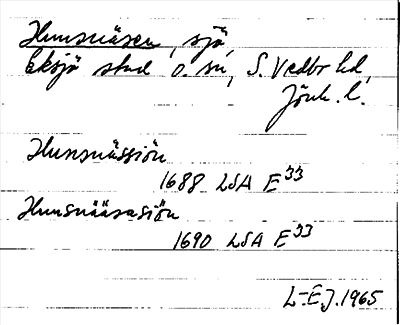 Hunsnäsen, sjö,
Eksjö stad o. sn, S. Vedbo hd,
Jönk. l.
Hunsnässiön
1688 LSA E 33
Hunsnääsasiön
1690 LSA E 33
L-E.J. 1965